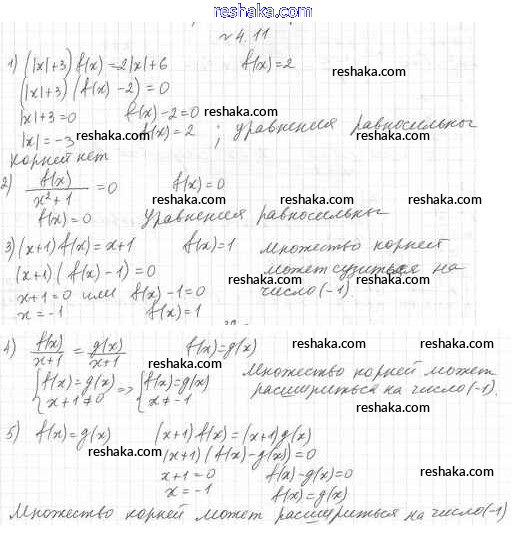 reshaka.com
№4.11
1) (|x|+3) f(x) = 2|x|+6 f(x)=2
(|x|+3) (f(x)-2)=0 reshaka.com
|x|+3=0 f(x)-2=0 reshaka.com
|x|=-3 reshaka.com f(x)=2 ; уравнения равносильны
корней нет reshaka.com
2) f(x)/(x²+1) = 0 f(x)=0 reshaka.com
f(x)=0 уравнения равносильны
reshaka.com
3) (x+1) f(x)=x+1 f(x)=1 множество корней
(x+1) ( f(x)-1)=0 может сузиться на
reshaka.com
x+1=0 или f(x)-1=0 число (-1).
x=-1 f(x)=1
reshaka.com reshaka.com
4) f(x)/(x+1) = g(x)/(x+1) f(x)=g(x) reshaka.com
reshaka.com
{f(x)=g(x) x+1≠0 => {f(x)=g(x) x≠-1 Множество корней может
расшириться на число (-1).
reshaka.com
5) f(x)=g(x) (x+1) f(x)=(x+1)g(x)
reshaka.com (x+1) ( f(x)-g(x))=0
x+1=0 f(x)-g(x)=0 reshaka.com
x=-1 f(x)=g(x) reshaka.com
Множество корней может расшириться на число (-1)